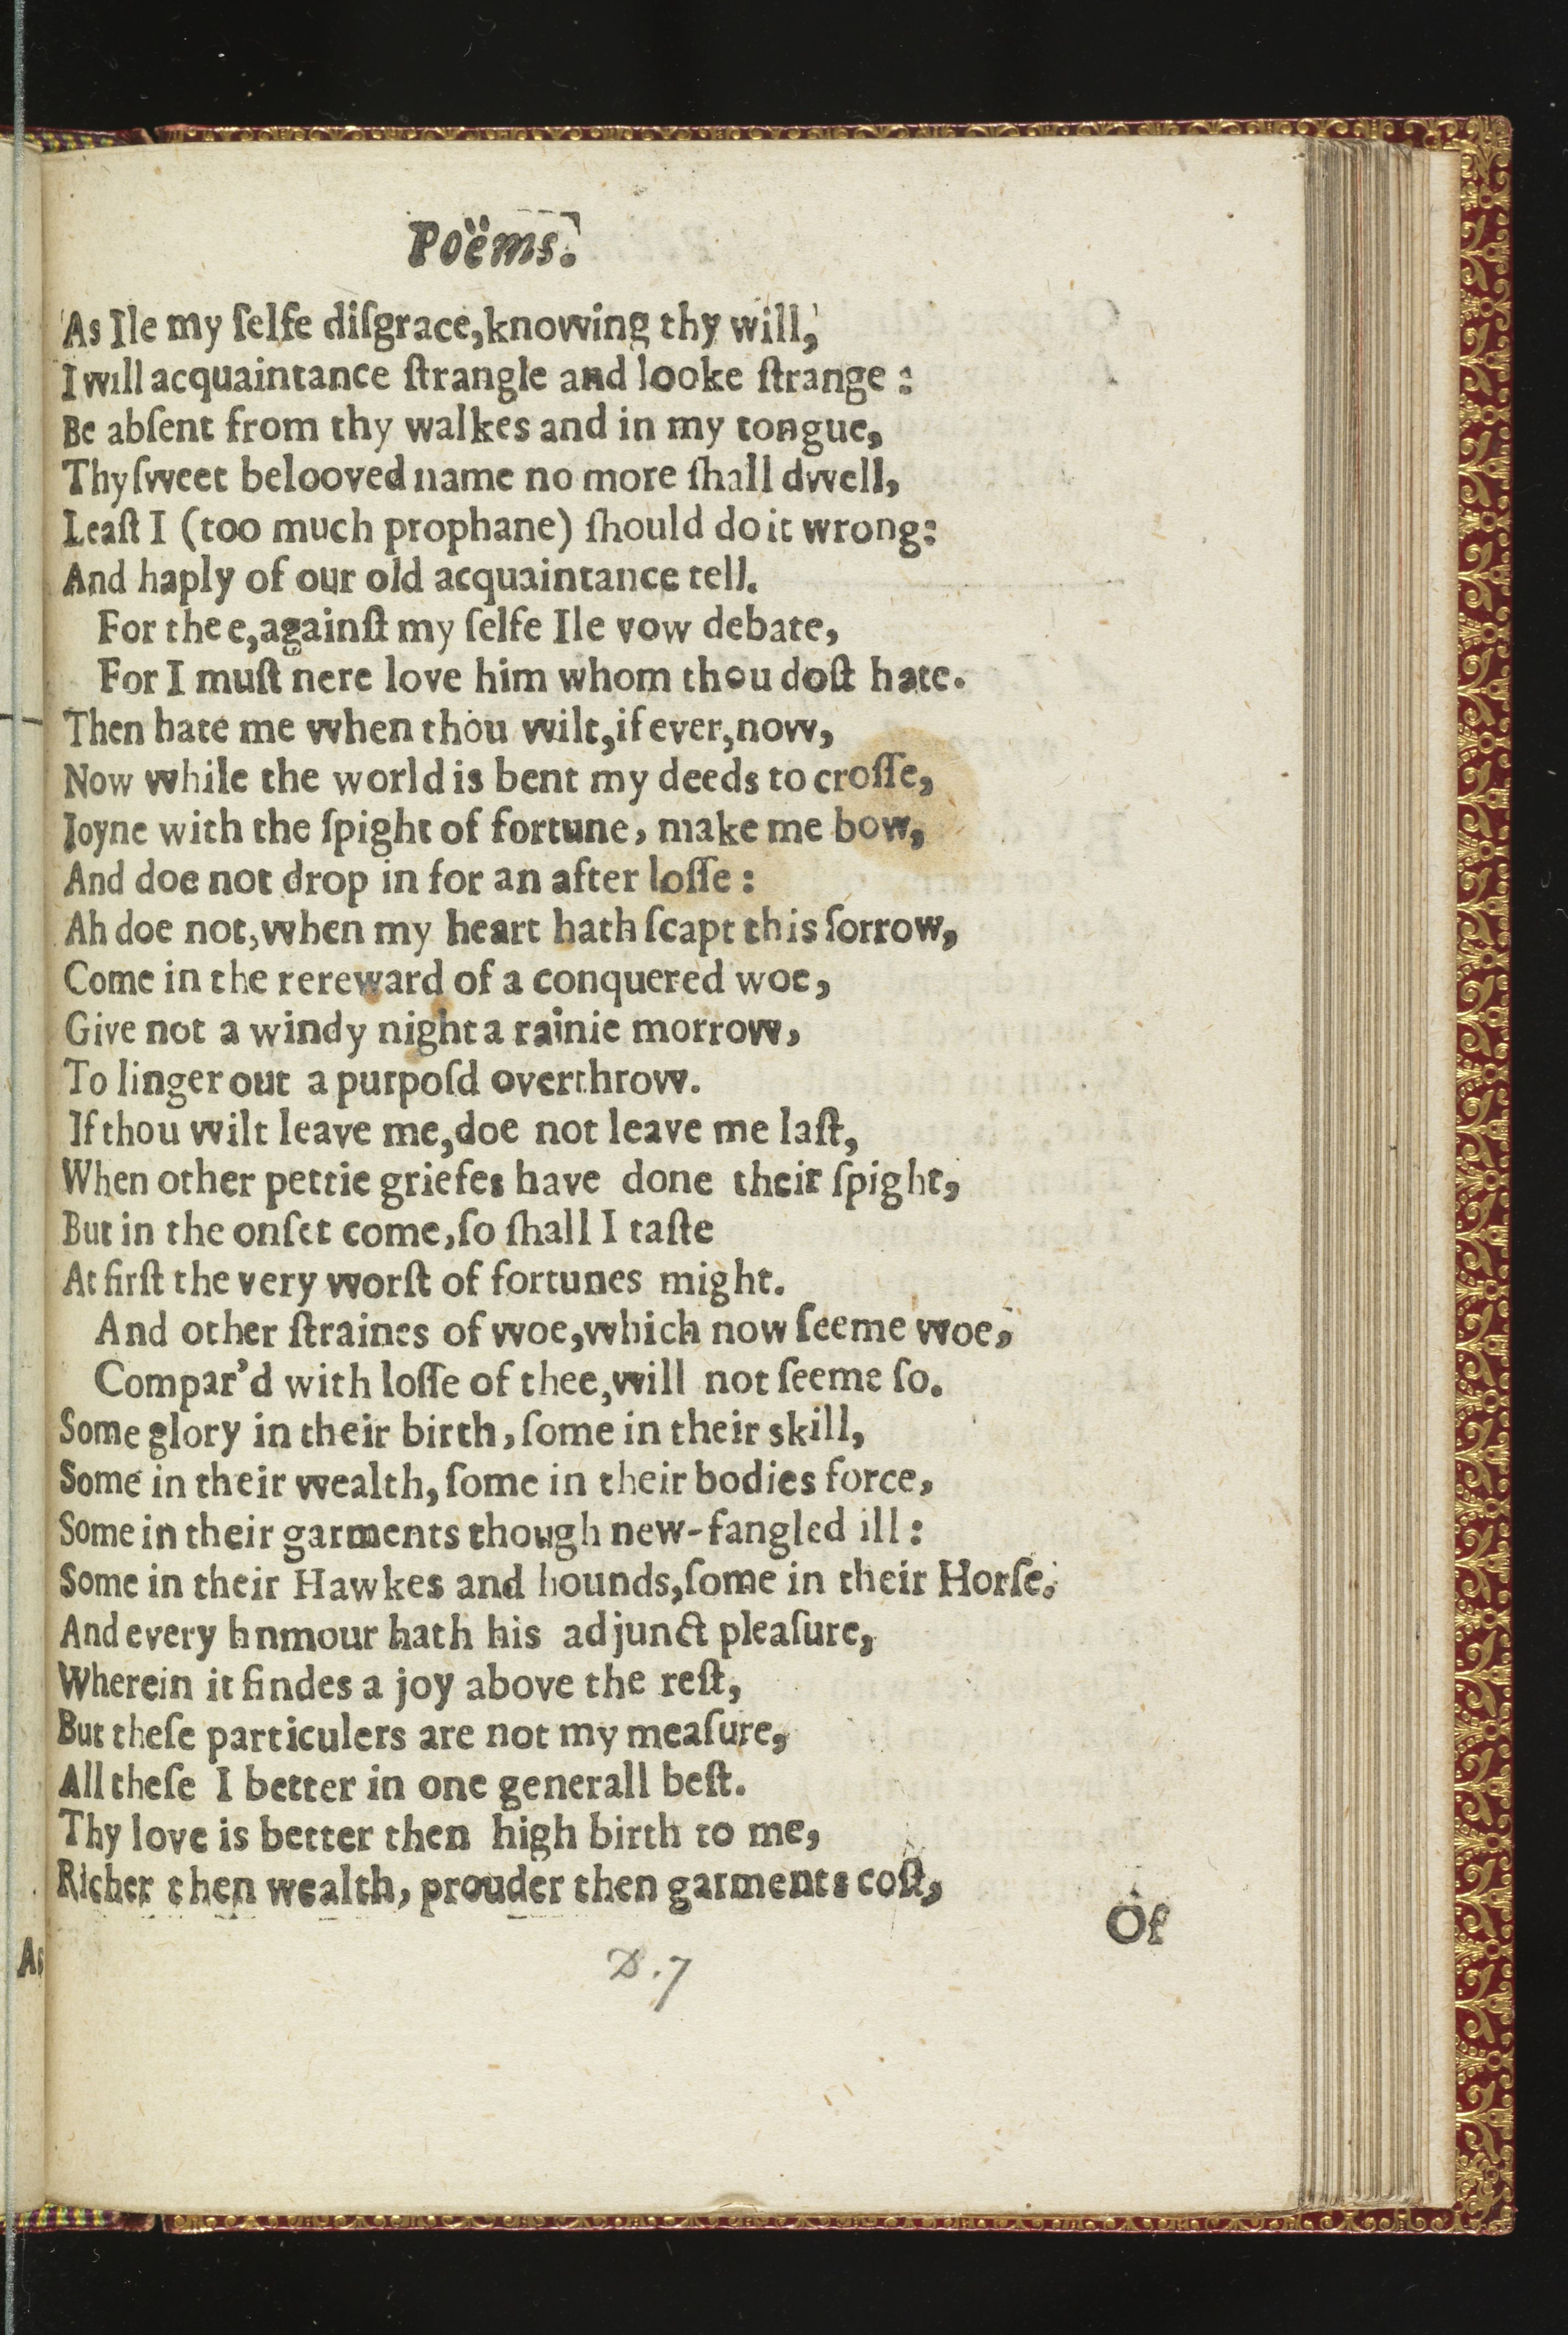 Poëms.
As Ile my ſelfe diſgrace,knowing thy will,
I will acquaintance ſtrangle and looke ſtrange :
Be abſent from thy walkes and in my tongue,
Thy ſweet belooved name no more ſhall dwell,
Leaſt I (too much prophane) ſhould do it wrong:
And haply of our old acquaintance tell.
For thee,againſt my ſelfe Ile vow debate,
For I muſt nere love him whom thou doſt hate.
Then hate me when thou wilt,if ever,now,
Now while the world is bent my deeds to croſſe,
Ioyne with the ſpight of fortune, make me bow,
And doe not drop in for an after loſſe :
Ah doe not,when my heart hath ſcapt this ſorrow,
Come in the rereward of a conquered woe,
Give not a windy night a rainie morrow,
To linger out a purpoſd overthrow.
If thou wilt leave me,doe not leave me laſt,
When other pettie griefes have done their ſpight,
But in the onſet come,ſo ſhall I taſte
At firſt the very worſt of fortunes might.
And other ſtraines of woe,which now ſeeme woe,
Compar'd with loſſe of thee,will not ſeeme ſo.
Some glory in their birth, ſome in their skill,
Some in their wealth, ſome in their bodies force,
Some in their garments though new-fangled ill :
Some in their Hawkes and hounds,ſome in their Horſe.
And every hnmour hath his adjunct pleaſure,
Wherein it findes a joy above the reſt,
But theſe particulers are not my meaſure,
All theſe I better in one generall beſt.
Thy love is better then high birth to me,
Richer then wealth, prouder then garments coſt,
Of
As
D.7